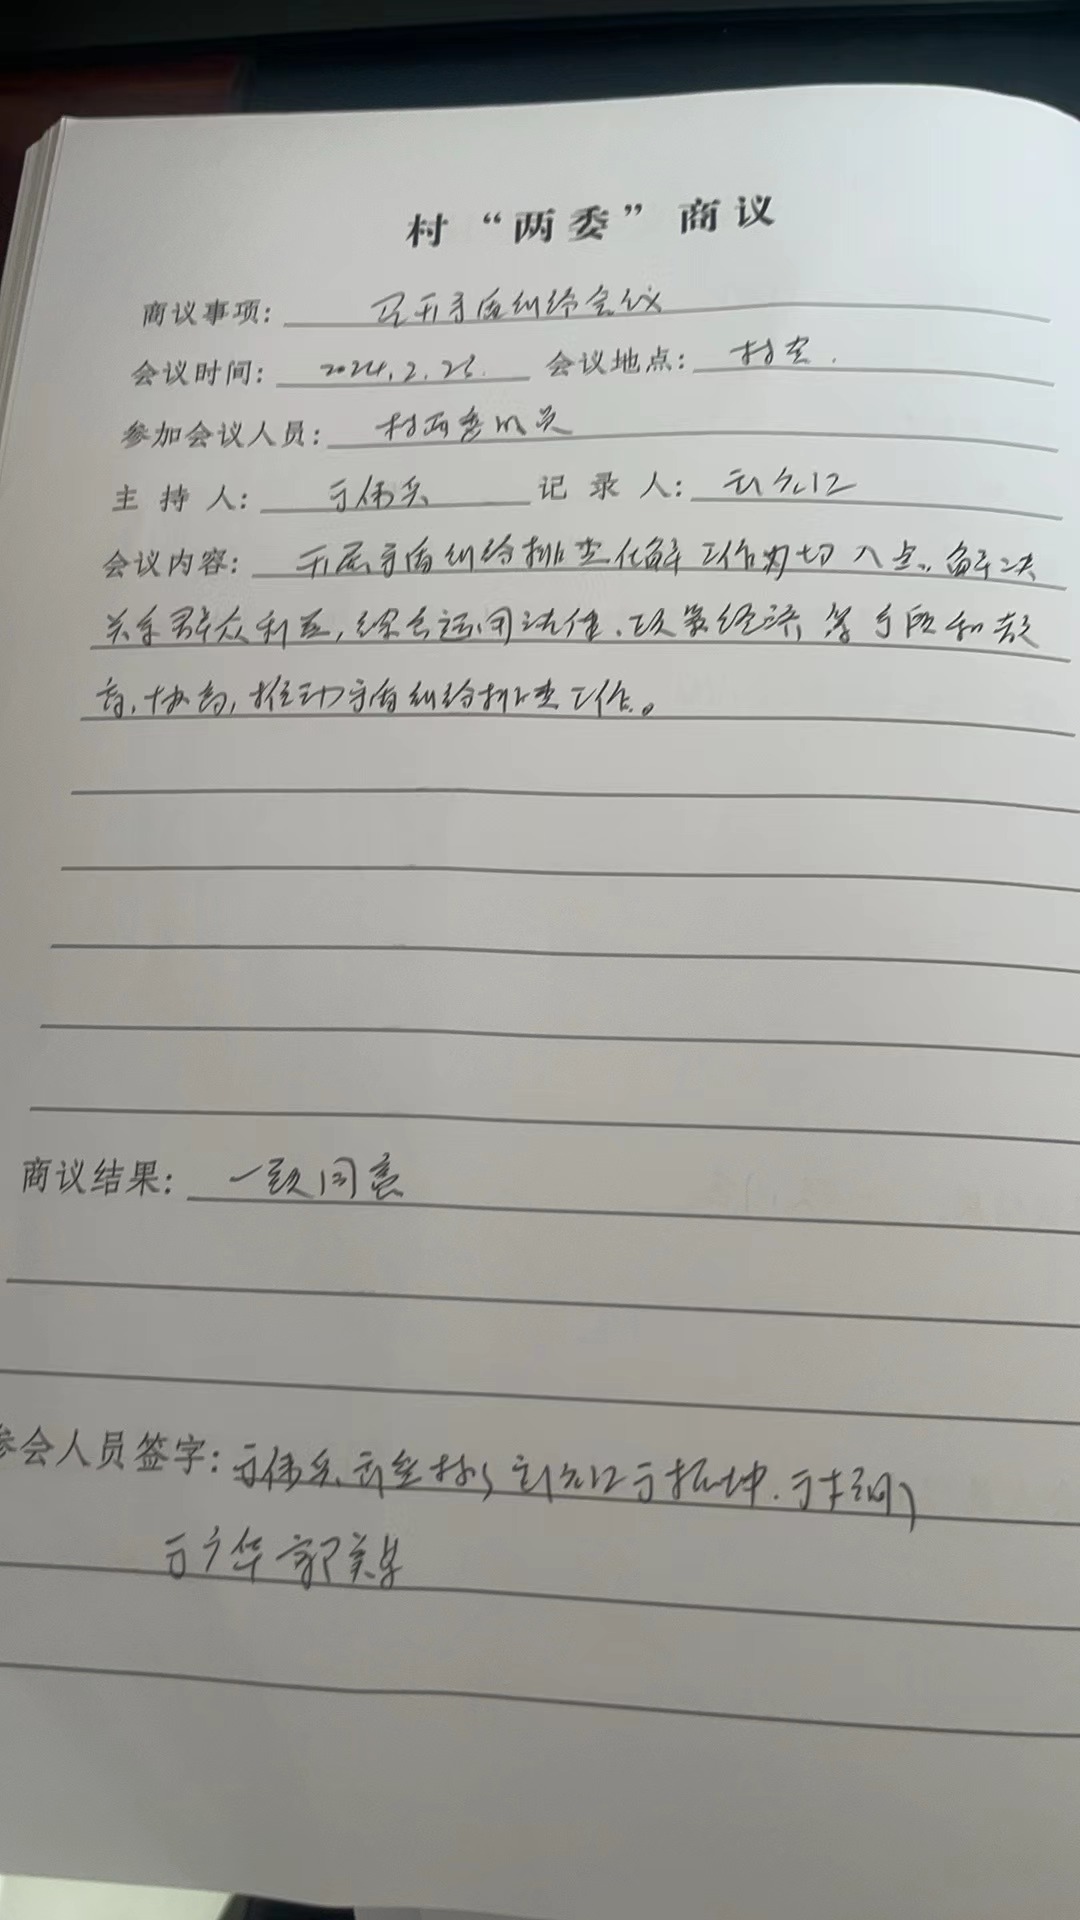 村“两委”商议
商议事项：召开矛盾纠纷会议
会议时间：2024.2.23. 会议地点：村室.
参加会议人员：村两委成员
主持人：于伟兵 记录人：
会议内容：开展矛盾纠纷排查化解工作为切入点，解决
关系群众利益，综合运用法律、政策经济，等手段和教
育，协商，推动矛盾纠纷排查工作。
商议结果：一致同意
参会人员签字：于伟兵 于振坤.
于广华 郭关